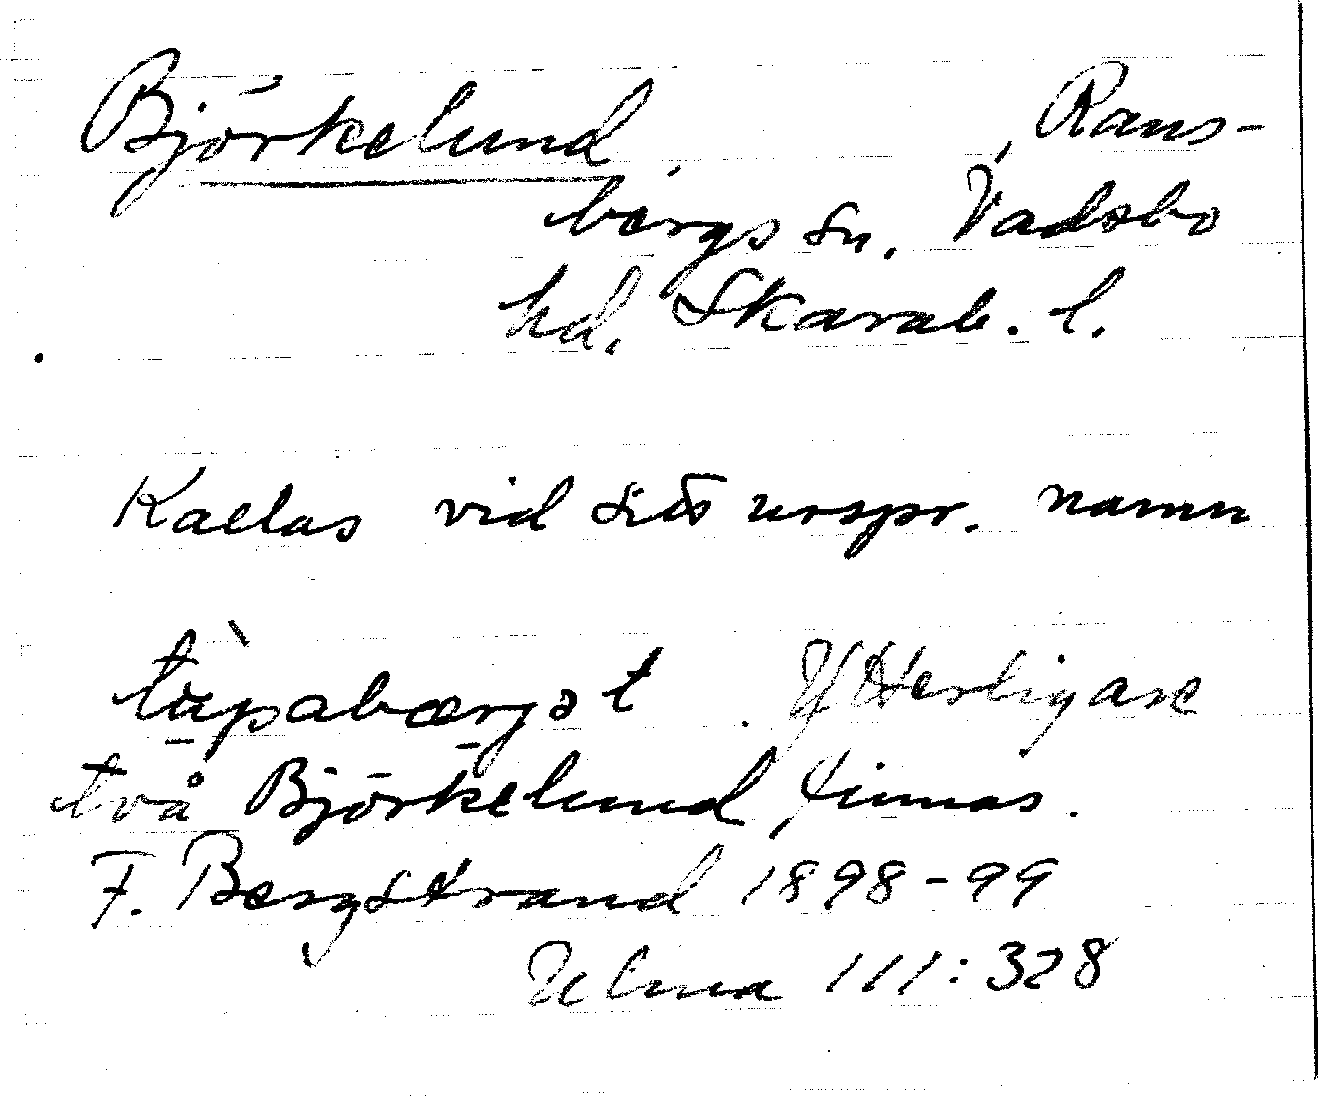 Björkelund, Rans-
bergs sn. Vadsbo
hd. Skarab. l.
Kallas vid sitt urspr. namn
tāpabærjət. Ytterligare
två Björkelund finnas.
F. Bergstrand 1898-99
Ulma 111:328